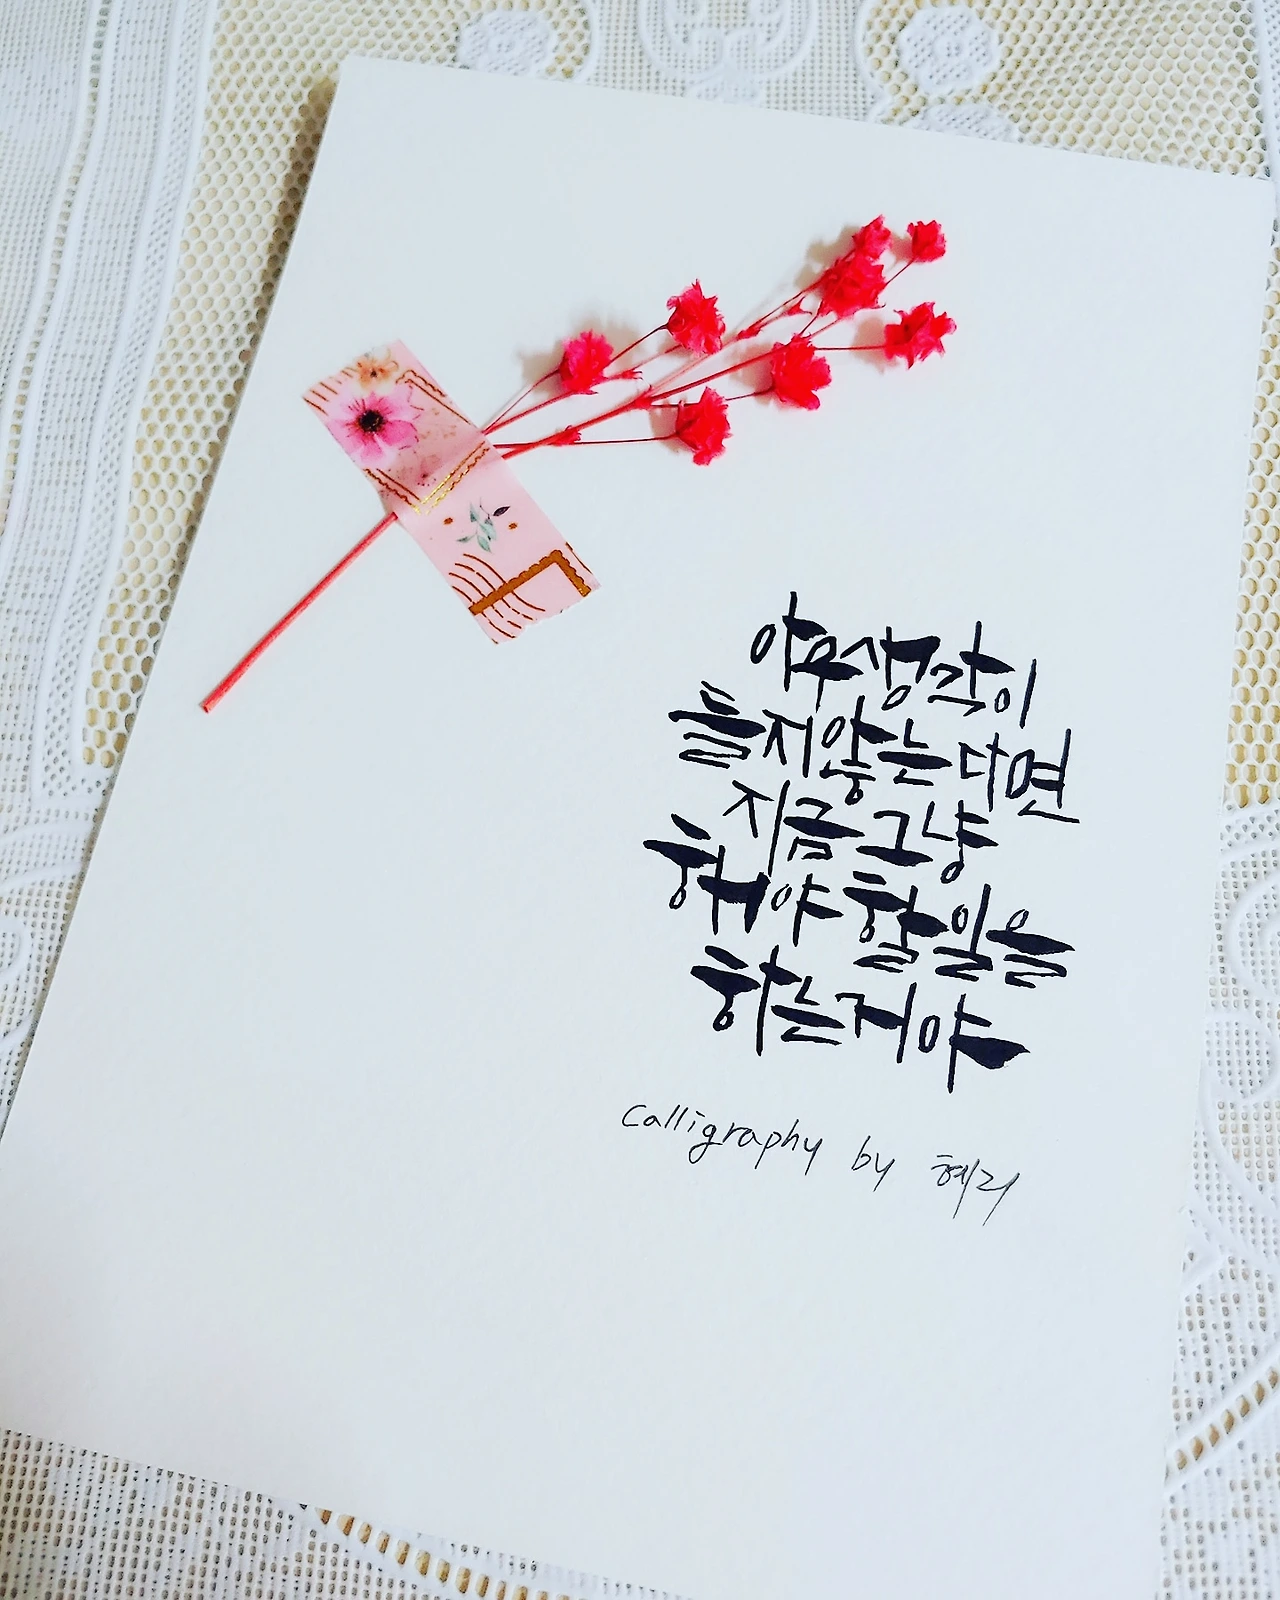 아무생각이
들지않는다면
지금 그냥
해야 할일을
하는거야
Calligraphy by 혜리